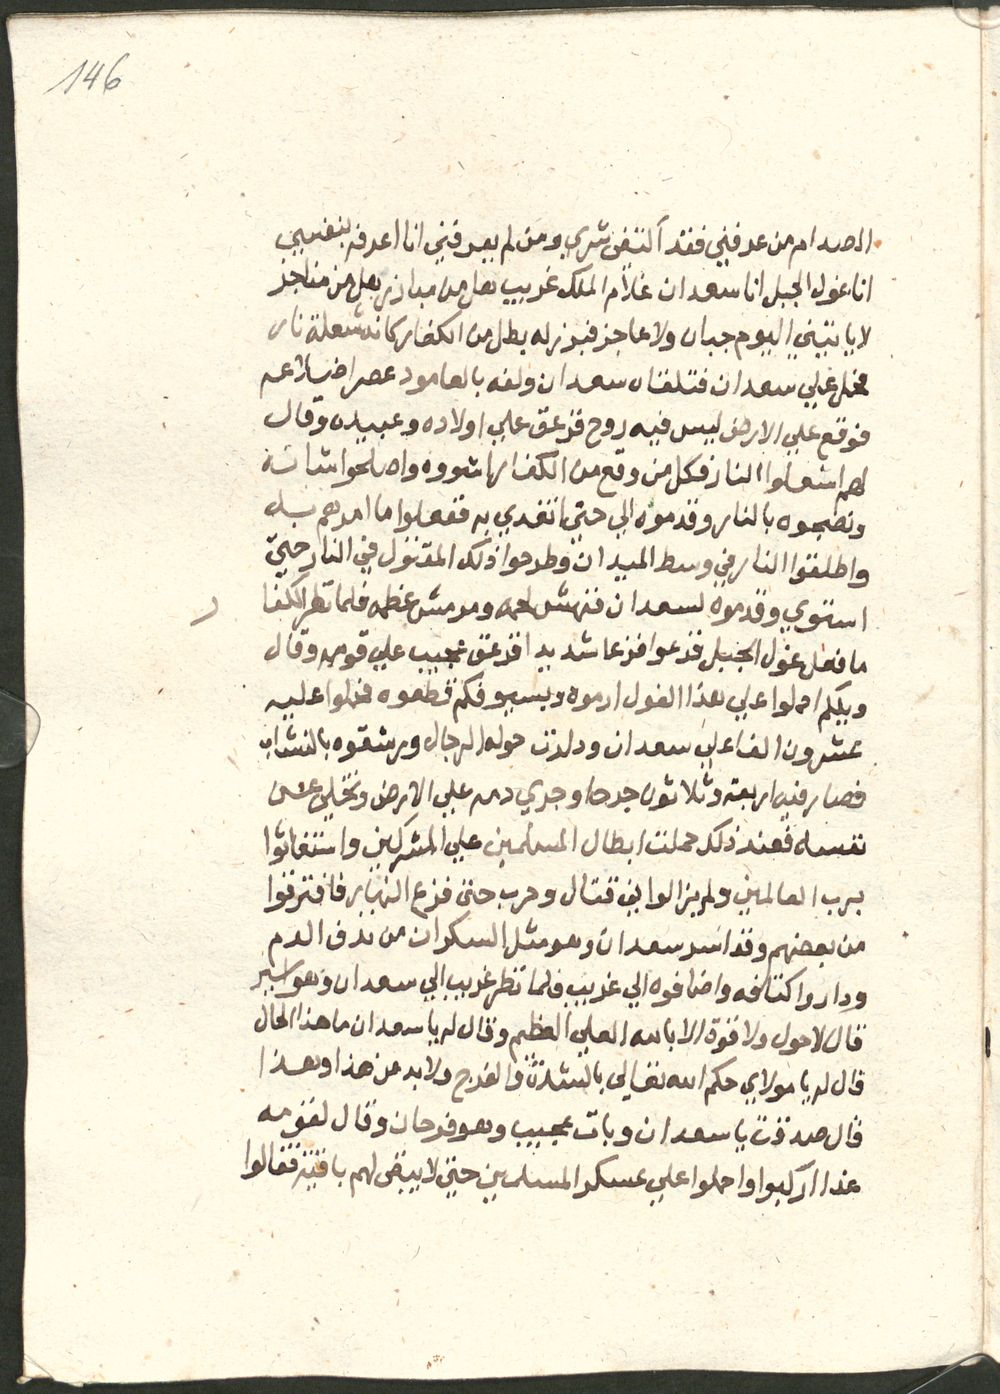 146
الصدام من عرفني فقد اكتفى شري ومن لم يعرفني انا اعرفه بنفسي
انا غول الجبل انا سعدان غلام الملك غريب هل من مبارز هل من مناجز
لا ياتيني اليوم جبان ولا عاجز فبرز له بطل من الكفار كانه شعلة نار
فحمل علي سعدان فتلقاه سعدان ولفه بالعامود عصر اضلاعه
فوقع علي الارض ليس فيه روح فزعق علي اولاده وعبيده وقال
لهم اشعلوا النار فكل من وقع من الكفار اشووه واصلحوا شانه
ونضجوه بالنار وقدموه الي حتي اتغدي به ففعلوا ما امرهم به
واطلقوا النار في وسط الميدان وطرحوا ذلك المقتول في النار حتي
استوي وقدموه لسعدان فنهش لحمه ومرمش عظمه فلما نظر الكفا
ر
ما فعل غول الجبل فزعوا فزعا شديدا فزعق عجيب علي قومه وقال
ويلكم احملوا علي هذا الغول ارموه وبسيوفكم قطعوه فحملوا عليه
عشرون الفا علي سعدان ودارت حوله الرجال ورشقوه بالنشاب
فصار فيه اربعة وثلاثون جرحا وجري دمه علي الارض وتخلي عن
نفسه فعند ذلك حملت ابطال المسلمين علي المشركين واستغاثوا
برب العالمين ولم يزالوا في قتال وحرب حتى فرغ النهار فافترقوا
من بعضهم وقد اسر سعدان وهو مثل السكران من نزف الدم
وداروا كتافه واضافوه الي غريب فلما نظر غريب الي سعدان وهو اسير
قال لا حول ولا قوة الا بالله العلي العظيم وقال له يا سعدان ما هذا الحال
قال له يا مولاي حكم الله تعالى بالشدة والفرج ولا بد من هذا وهذا
قال صدقت يا سعدان وبات عجيب وهو فرحان وقال لقومه
غدا اركبوا واحملوا علي عسكر المسلمين حتى لا يبقى لهم باقية فقالوا